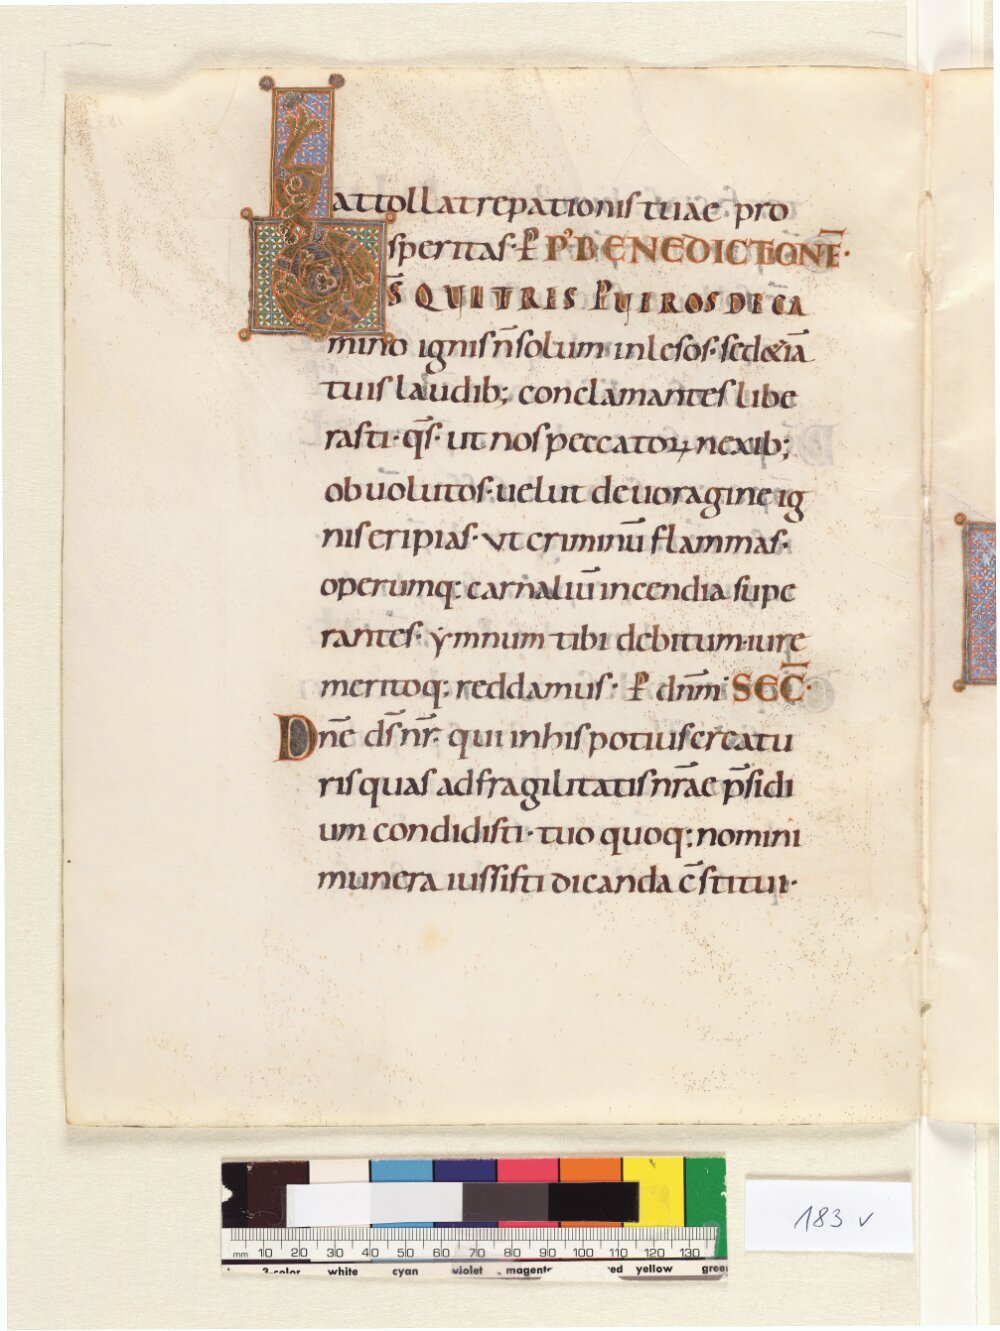 attollat repationis tuae pro
speritas · P̄ P' BENEDICTIONĒ·
D S̄ QUI TRIS PUEROS DE CA
mino ignis n̄ solum inlesos· sed & iā
tuis laudib; conclamantes libe
rasti· q̄s· ut nos peccatoꝝ nexib;
obuolutos· uelut deuoragine ig
nis eripias· ut criminū flammas·
operumq; carnaliū incendia supe
rantes· ẏmnum tibi debitum iure
meritoq; reddamus· ꝑ dn̄m· SEC̄·
Dn̄e ds̄ nr̄· qui in his potius creatu
ris quas ad fragilitatis nr̄ae p̄sidi
um condidisti· tuo quoq; nomini
munera iussisti dicanda c̄stitui·
183 v
mm 10 20 30 40 50 60 70 80 90 100 110 120 130
3-color white cyan violet magenta red yellow green